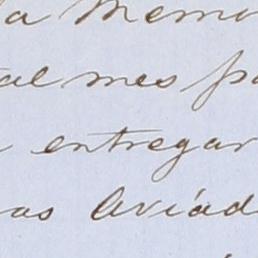 la Memo
tal mes pa
entregar
as Aviad